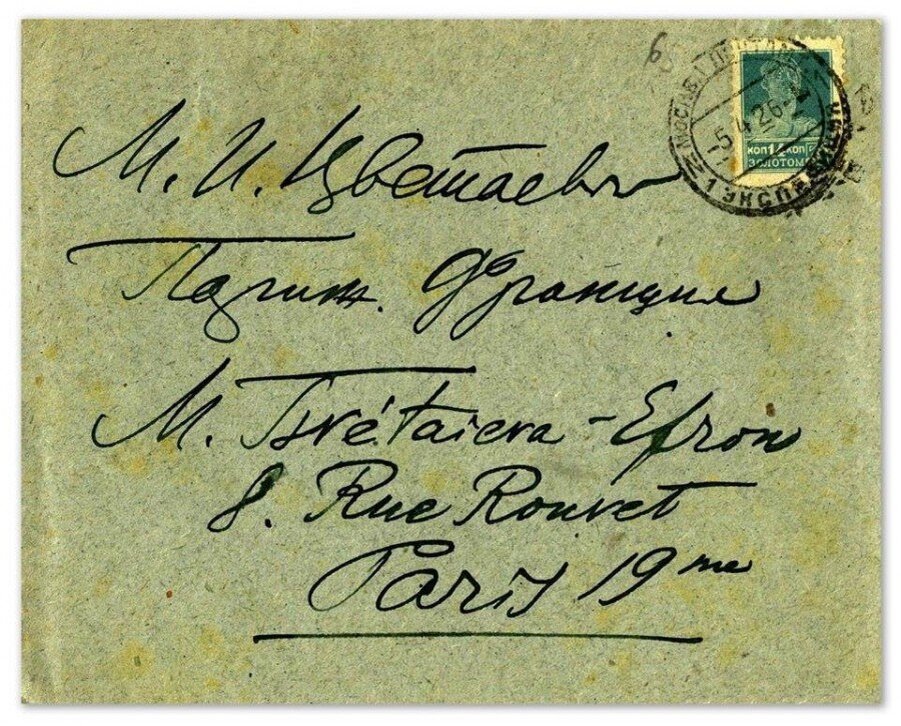 6
МОСКВА
-5.4.26-
1 ЭКСПЕДИЦИЯ
КОП 14 КОП
ЗОЛОТОМ
М. И. Цветаевой
Париж. Франция
M. Tsvétaieva-Efron
8. Rue Rouvet
Paris 19me